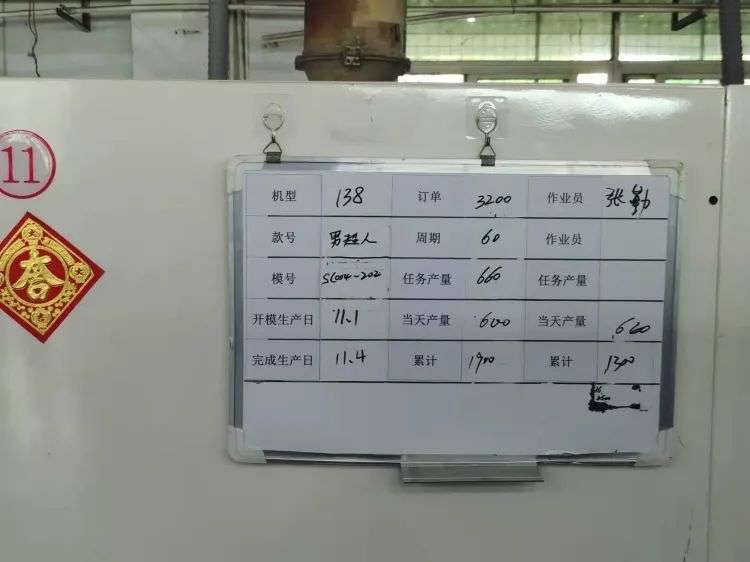 11
机型 138 订单 3200 作业员 张勤
款号 男超人 周期 60 作业员
模号 SC004-202 任务产量 660 任务产量
开模生产日 11.1 当天产量 600 当天产量 620
完成生产日 11.4 累计 1900 累计 1300